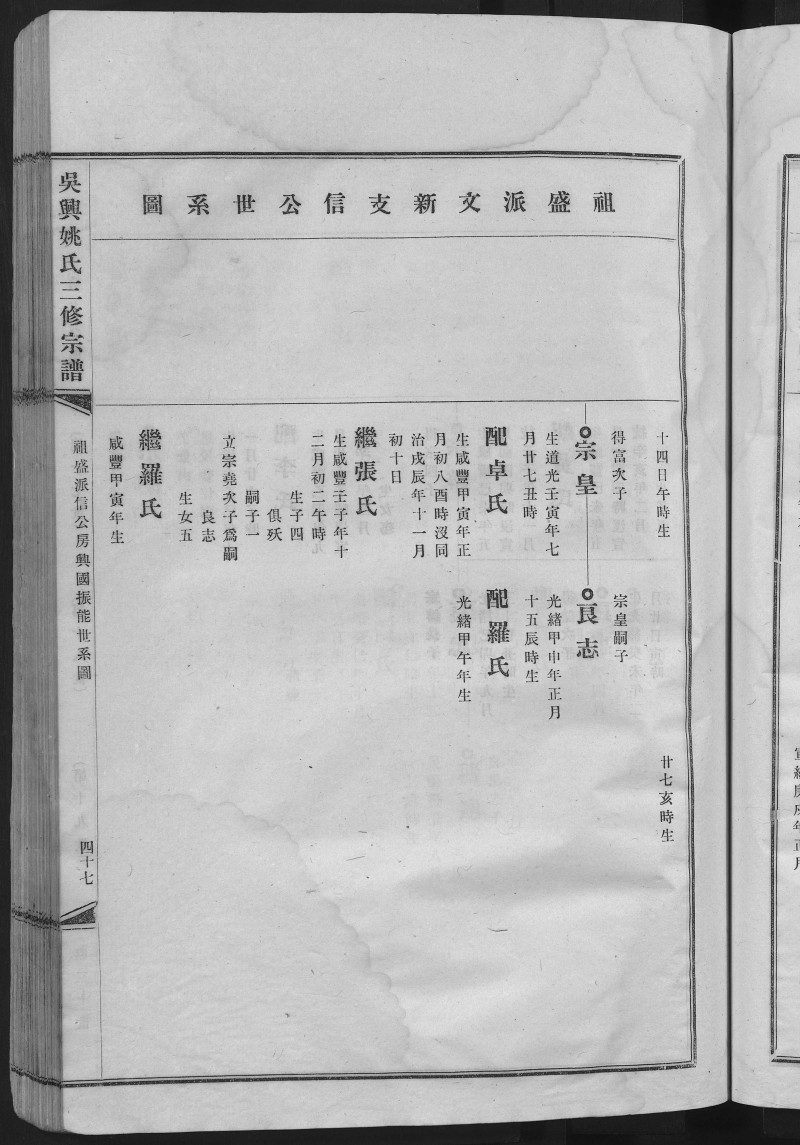 祖盛派文新支信公世系圖
十四日午時生
廿七亥時生
得富次子
宗皇
生道光壬寅年七
月廿七丑時
配卓氏
生咸豐甲寅年正
月初八酉時沒同
治戊辰年十一月
初十日
繼張氏
生咸豐壬子年十
二月初二午時
生子四
俱殀
嗣子一
立宗堯次子爲嗣
良志
生女五
繼羅氏
咸豐甲寅年生
宗皇嗣子
良志
光緒甲申年正月
十五辰時生
配羅氏
光緒甲午年生
吳興姚氏三修宗譜
祖盛派信公房興國振能世系圖
四十七